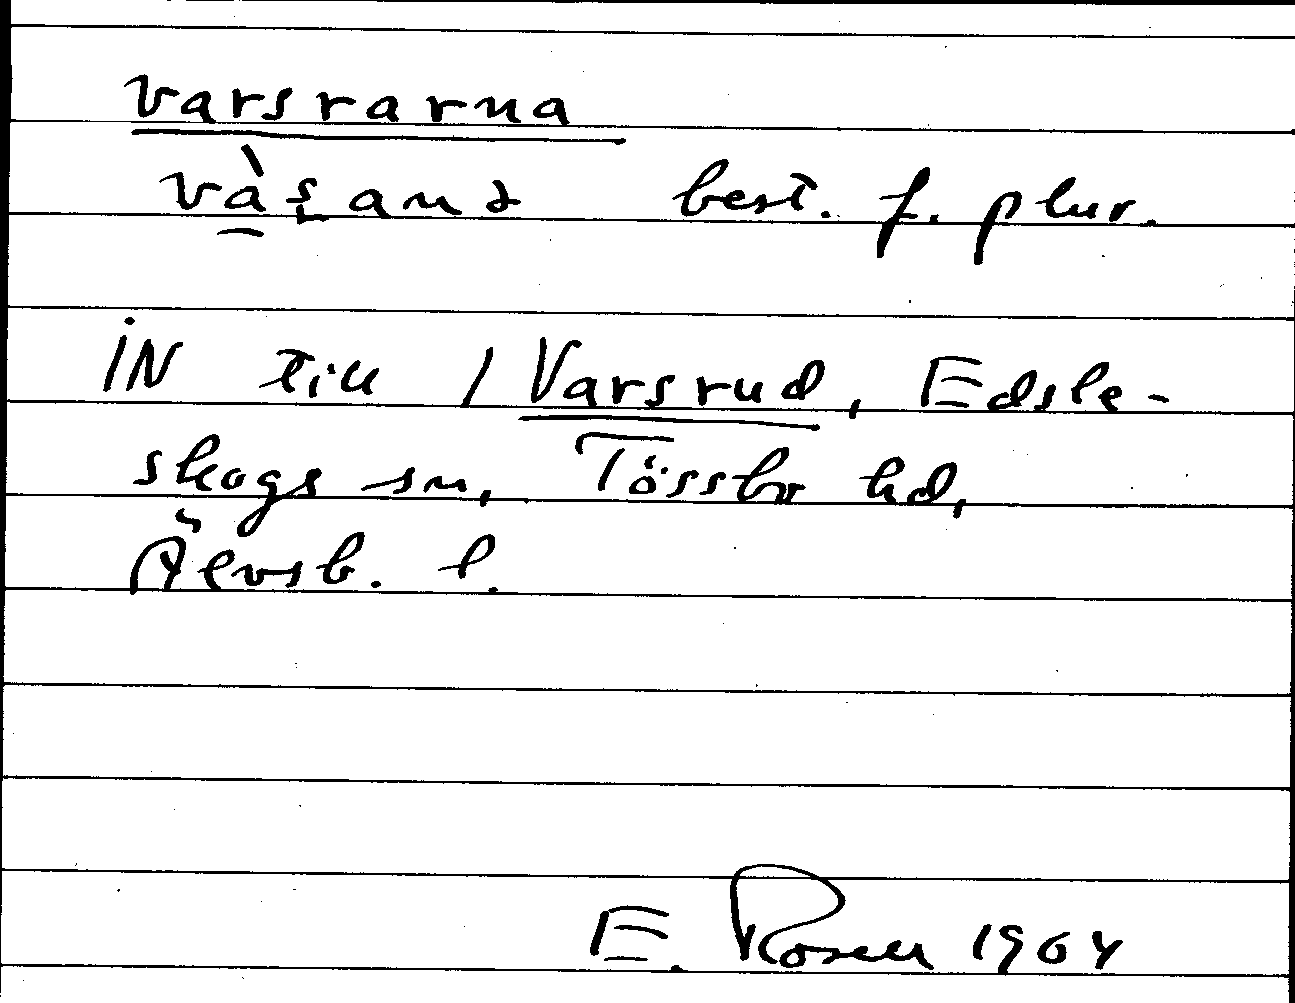 varsrarna
và̱ʂanə best. f. plur.
IN till / Varsrud, Edsle-
skogs sn, Tössbo hd,
Älvsb. l.
E. Rosell 1964